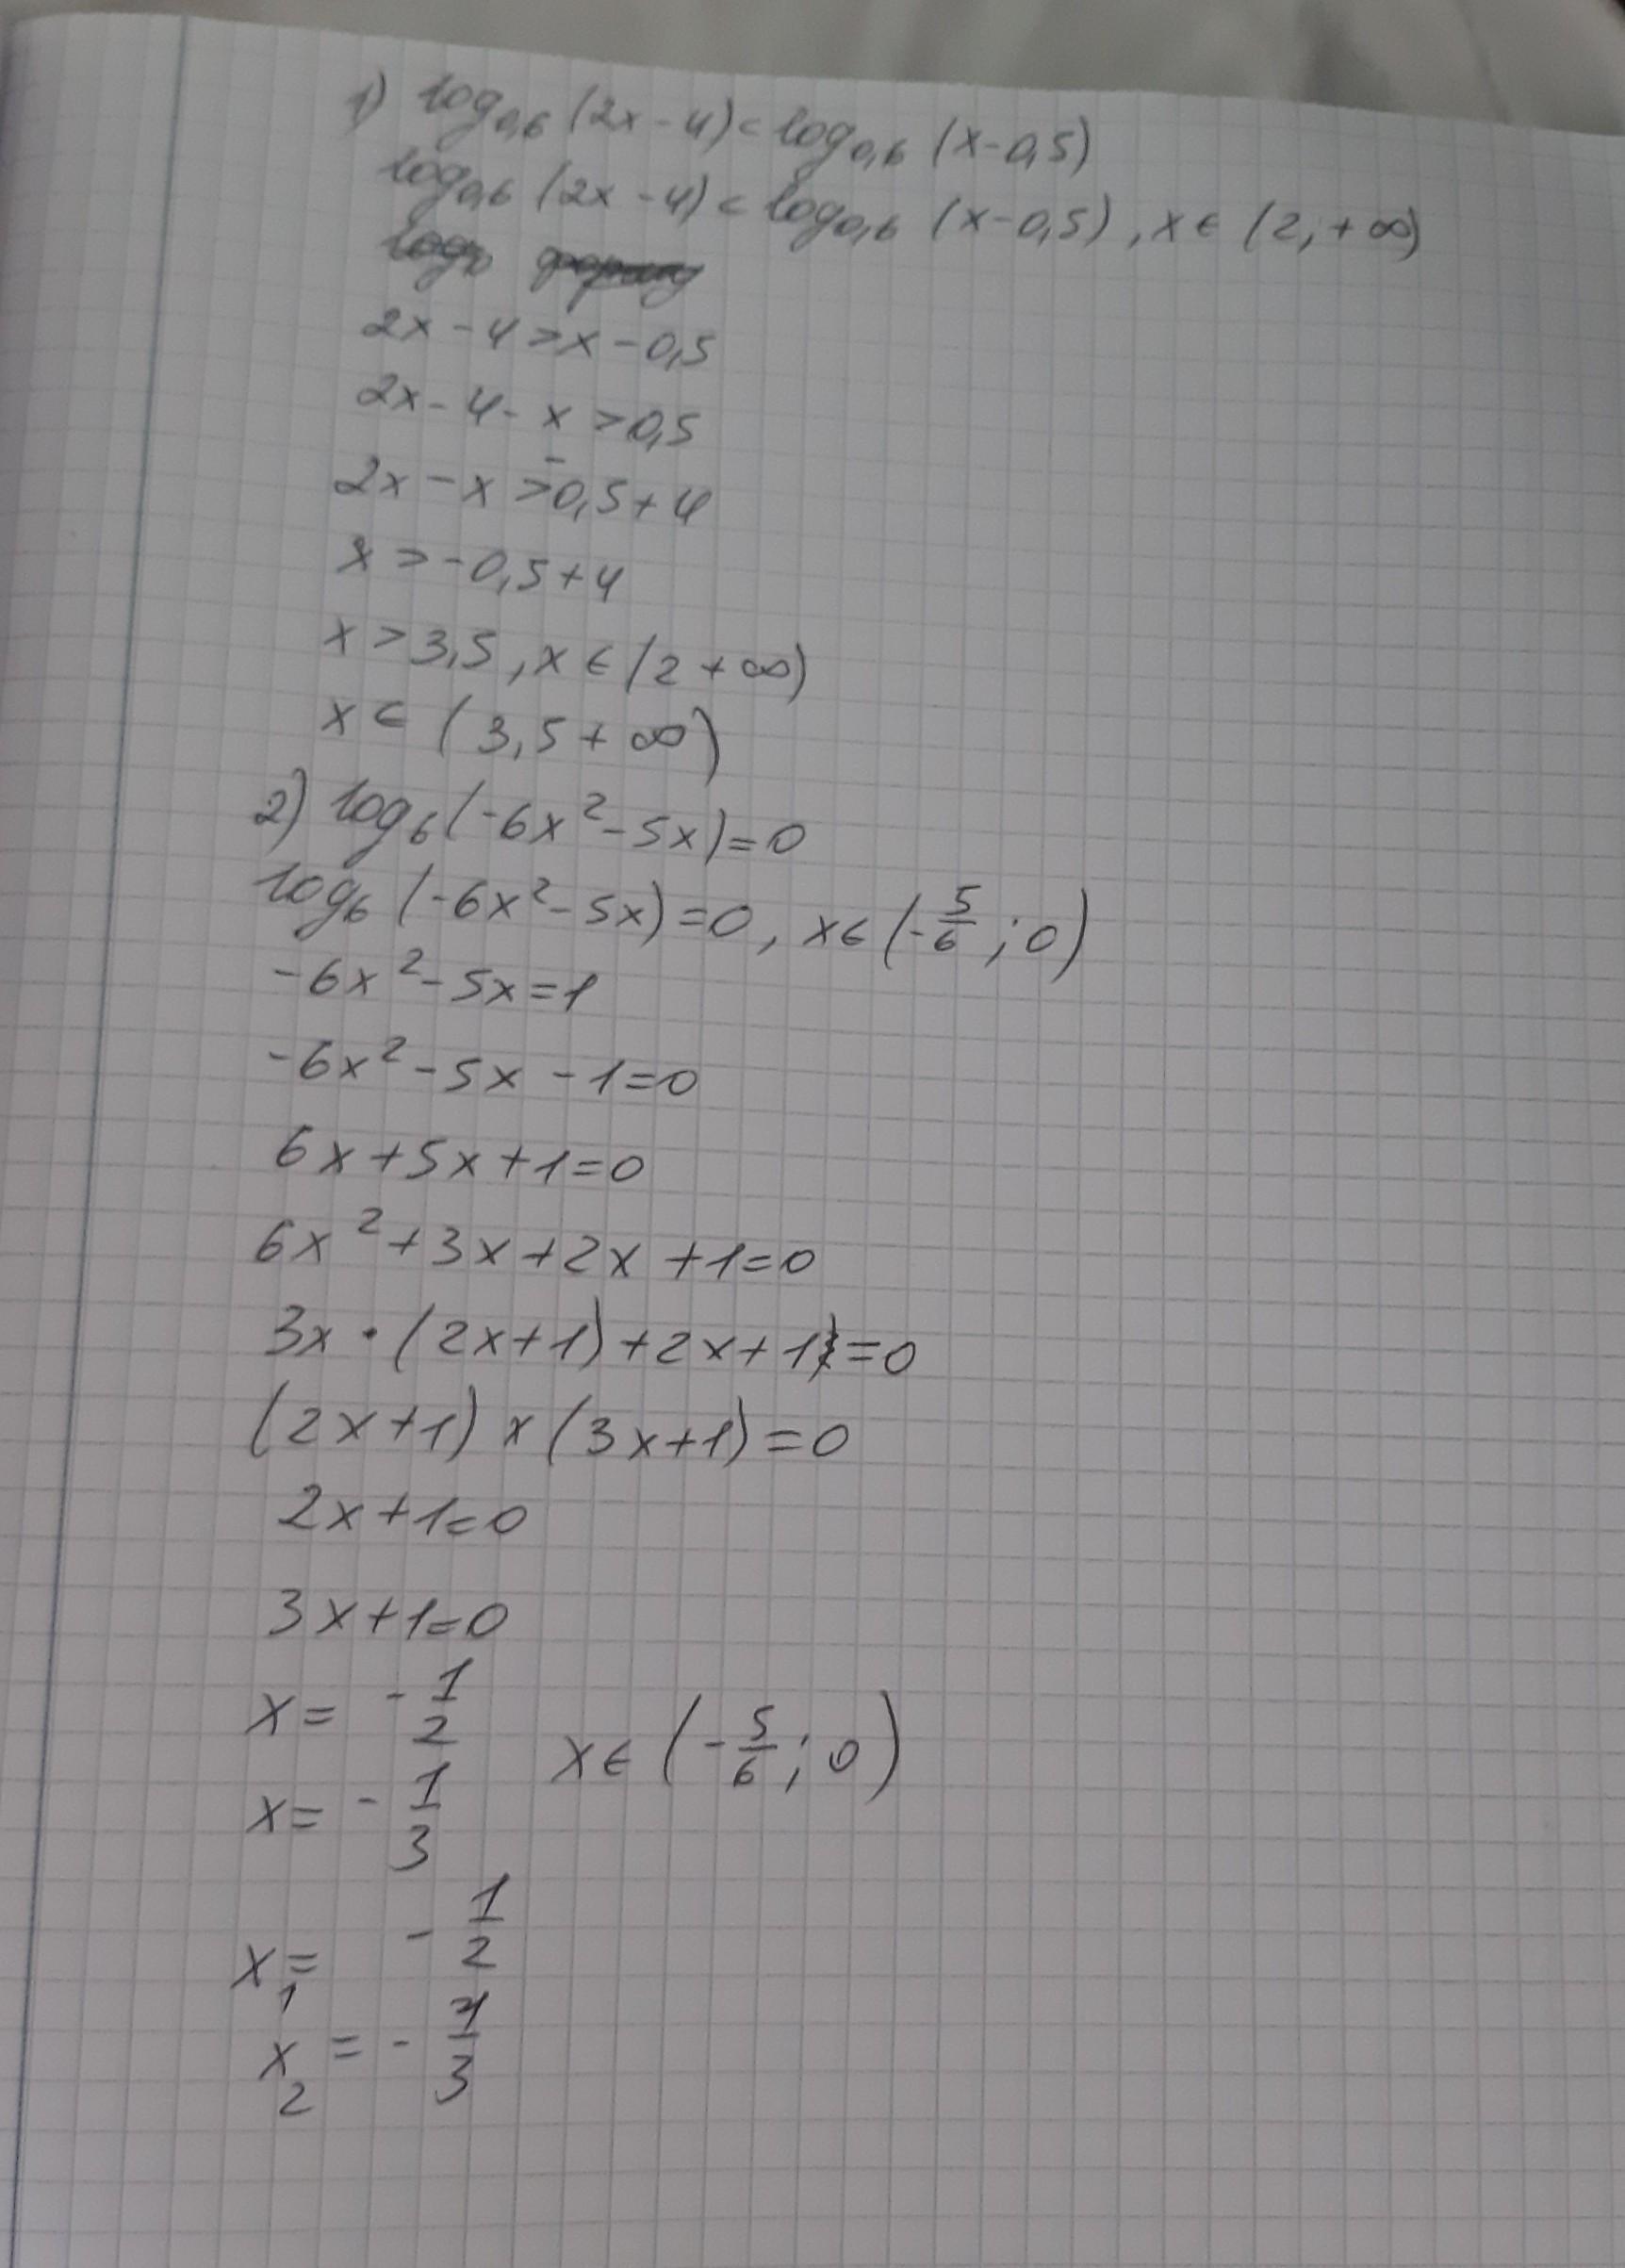 1) log₀,₆ (2x - 4) < log₀,₆ (x - 0,5)
log₀,₆ (2x - 4) < log₀,₆ (x - 0,5) , x ∈ (2; +∞)
2x - 4 > x - 0,5
2x - 4 - x > 0,5
2x - x > -0,5 + 4
x > -0,5 + 4
x > 3,5 , x ∈ (2 + ∞)
x ∈ (3,5 + ∞)
2) log₆ (-6x² - 5x) = 0
log₆ (-6x² - 5x) = 0 , x ∈ (-5/6 ; 0)
-6x² - 5x = 1
-6x² - 5x - 1 = 0
6x + 5x + 1 = 0
6x² + 3x + 2x + 1 = 0
3x · (2x + 1) + 2x + 1 = 0
(2x + 1) x (3x + 1) = 0
2x + 1 = 0
3x + 1 = 0
x = -1/2
x ∈ (-5/6 ; 0)
x = -1/3
x₁ = -1/2
x₂ = -1/3